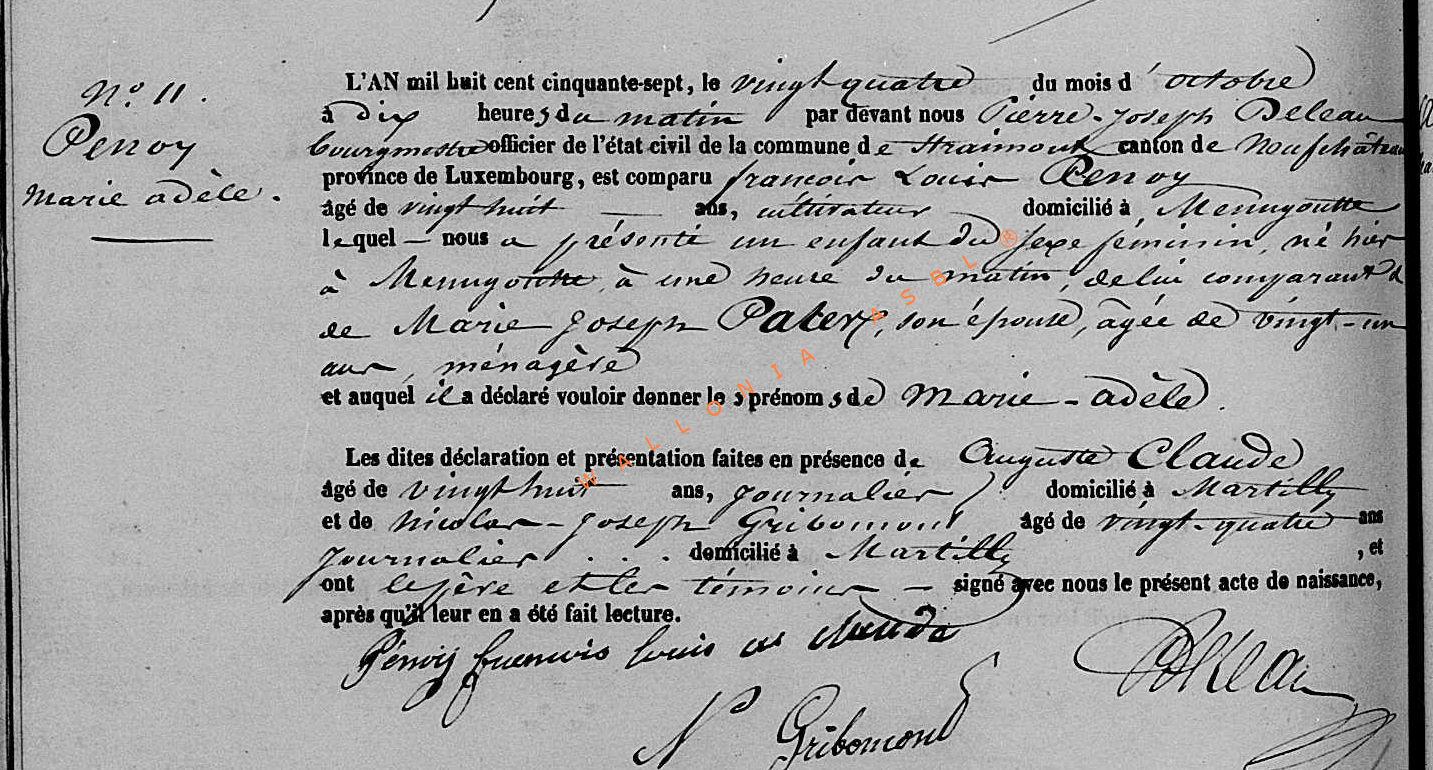 N° 11.
Penoy
Marie adèle.
L'AN mil huit cent cinquante-sept, le vingt quatre du mois d'octobre
à dix heures du matin par devant nous Pierre-Joseph Deleau
bourgmestre officier de l'état civil de la commune de Straimont canton de Neufchâteau
province de Luxembourg, est comparu françois Louis Penoy
âgé de vingt huit ans, cultivateur domicilié à Menugoutte
lequel nous a présenté un enfant du sexe féminin, né hier
à Menugoutte, à une heure du matin, de lui comparant &
de Marie Joseph Pater, son épouse, âgée de vingt-un
ans, ménagère
et auquel il a déclaré vouloir donner les prénoms de Marie-adèle.
Les dites déclaration et présentation faites en présence de Auguste Claude
âgé de vingt huit ans, journalier, domicilié à Martilly
et de Nicolas-Joseph Gribomont âgé de vingt-quatre ans
journalier . . . domicilié à Martilly , et
ont le père et les témoins signé avec nous le présent acte de naissance,
après qu'il leur en a été fait lecture.
Pénoy francois louis
Deleau
N Gribomont
WALLONIA ASBL ®